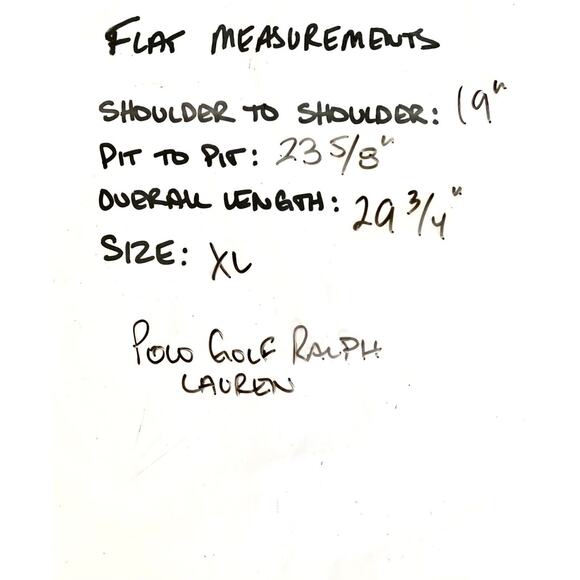 FLAT MEASUREMENTS
SHOULDER TO SHOULDER: 19"
PIT TO PIT: 23 5/8"
OVERALL LENGTH: 29 3/4"
SIZE: XL
POLO GOLF RALPH
LAUREN